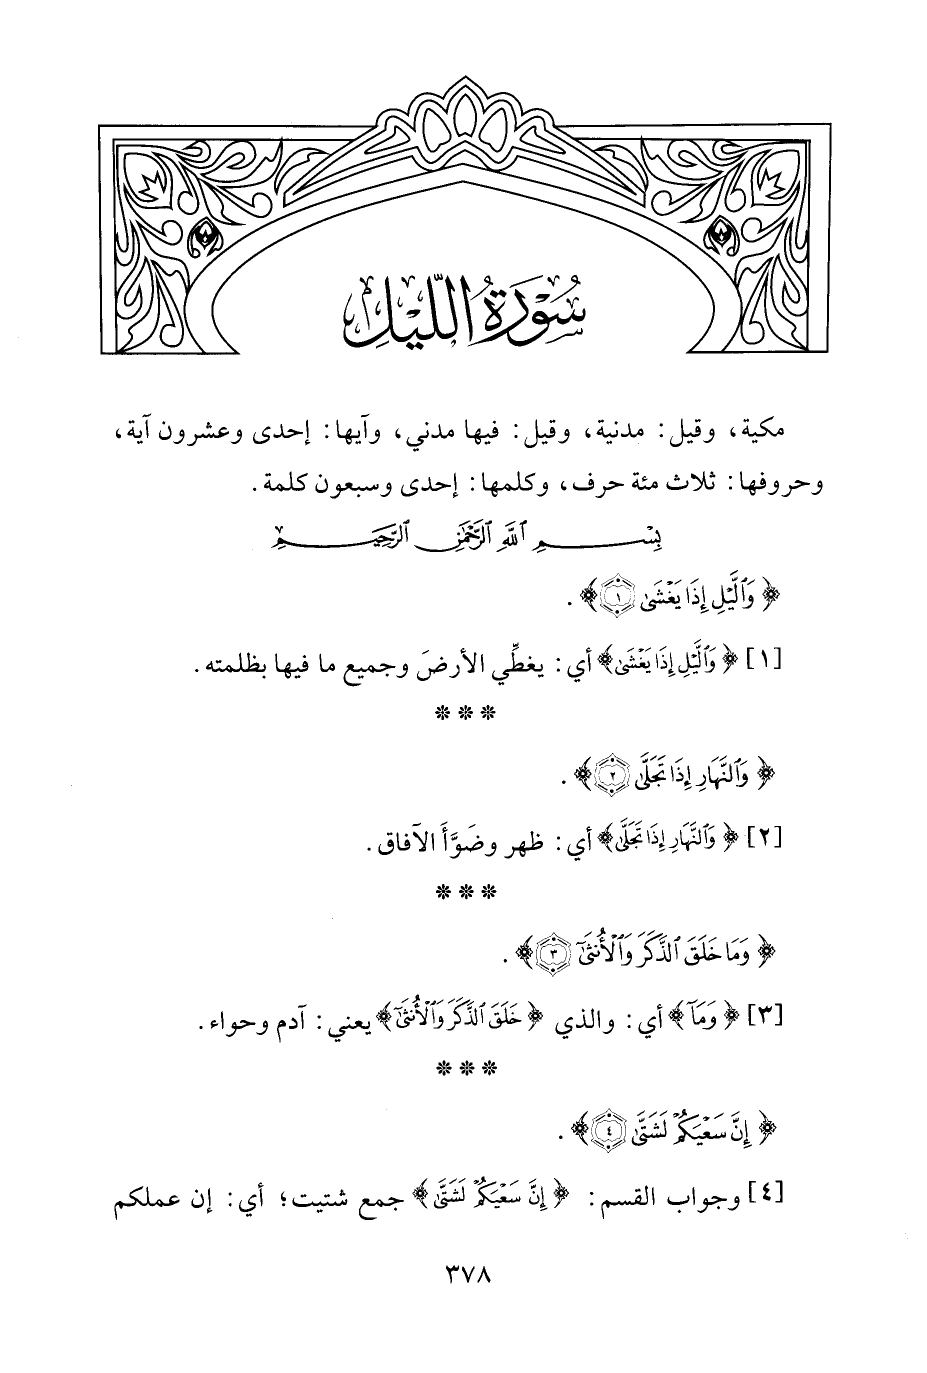 سُورَةُ اللَّيْلِ
مكية، وقيل: مدنية، وقيل: فيها مدني، وآيها: إحدى وعشرون آية،
وحروفها: ثلاث مئة حرف، وكلمها: إحدى وسبعون كلمة.
بِسْمِ ٱللَّهِ ٱلرَّحْمَٰنِ ٱلرَّحِيمِ
﴿ وَٱلَّيْلِ إِذَا يَغْشَىٰ ١ ﴾ .
[١] ﴿ وَٱلَّيْلِ إِذَا يَغْشَىٰ ﴾ أي: يغطِّي الأرضَ وجميع ما فيها بظلمته.
* * *
﴿ وَٱلنَّهَارِ إِذَا تَجَلَّىٰ ٢ ﴾ .
[٢] ﴿ وَٱلنَّهَارِ إِذَا تَجَلَّىٰ ﴾ أي: ظهر وضَوَّأَ الآفاق.
* * *
﴿ وَمَا خَلَقَ ٱلذَّكَرَ وَٱلْأُنثَىٰٓ ٣ ﴾ .
[٣] ﴿ وَمَآ ﴾ أي: والذي ﴿ خَلَقَ ٱلذَّكَرَ وَٱلْأُنثَىٰٓ ﴾ يعني: آدم وحواء.
* * *
﴿ إِنَّ سَعْيَكُمْ لَشَتَّىٰ ٤ ﴾ .
[٤] وجواب القسم: ﴿ إِنَّ سَعْيَكُمْ لَشَتَّىٰ ﴾ جمع شتيت؛ أي: إن عملكم
٣٧٨